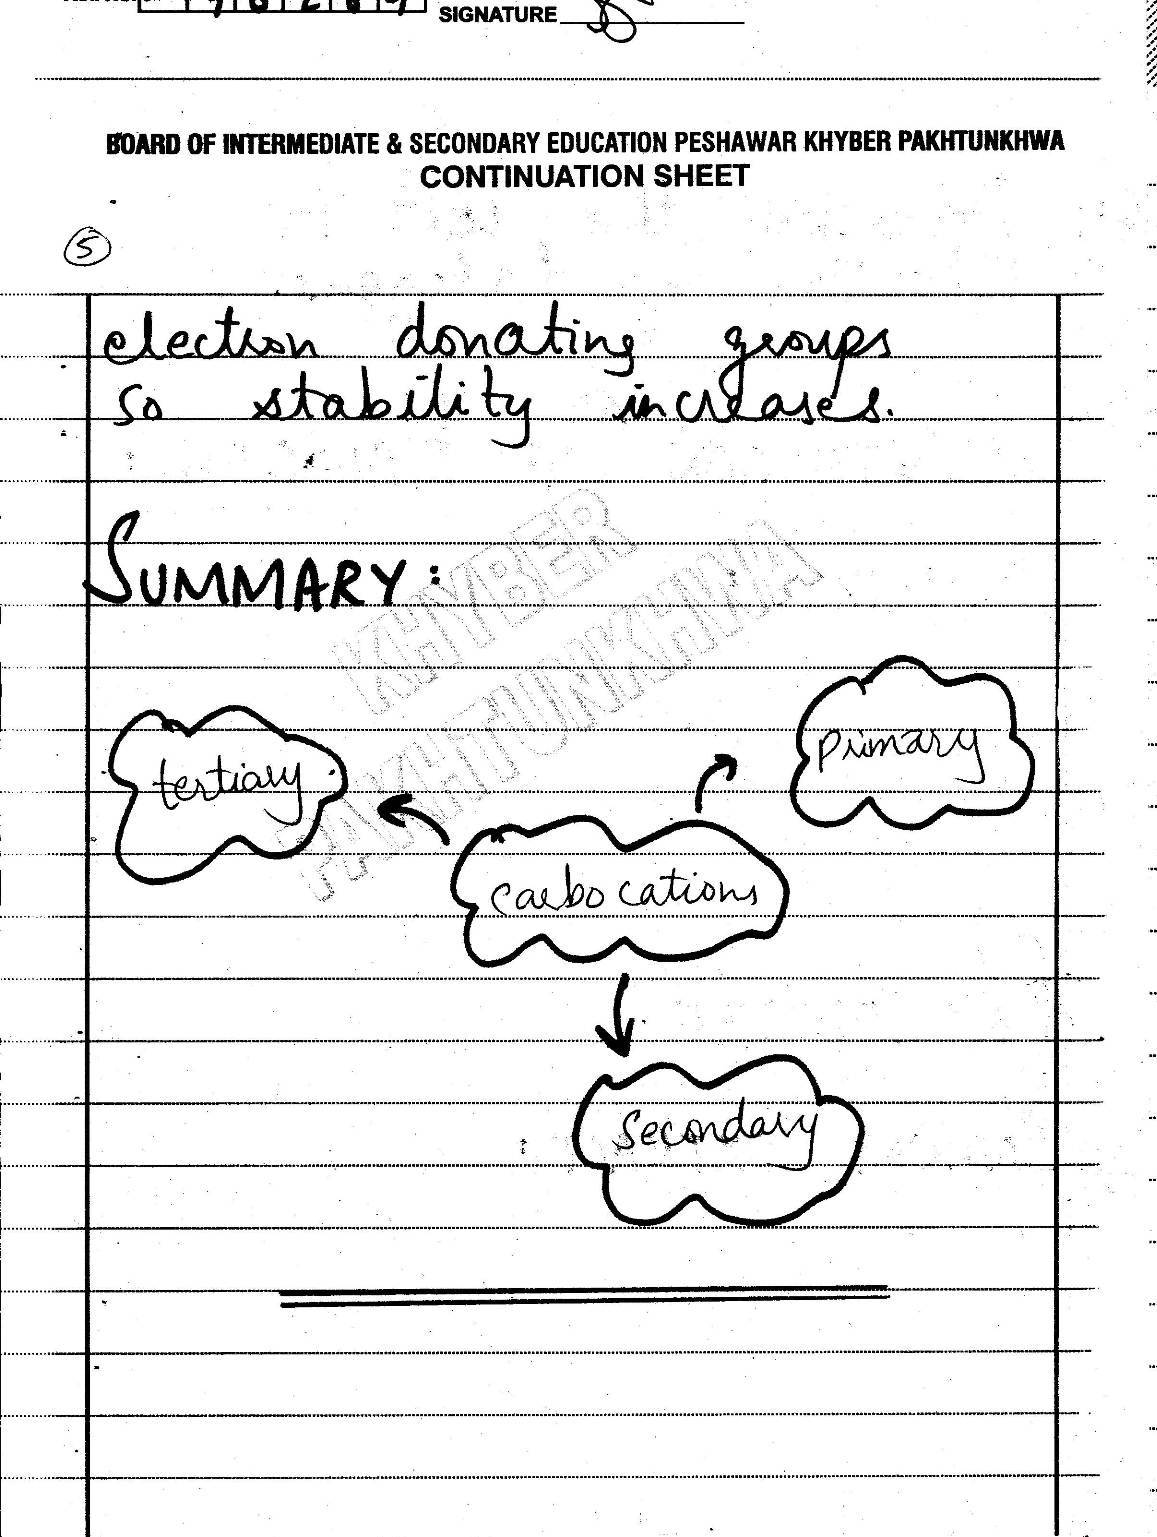 SIGNATURE
BOARD OF INTERMEDIATE & SECONDARY EDUCATION PESHAWAR KHYBER PAKHTUNKHWA
CONTINUATION SHEET
5
electron donating groups
so stability increases.
SUMMARY:
KHYBER
PAKHTUNKHWA
primary
tertiary
carbocations
secondary